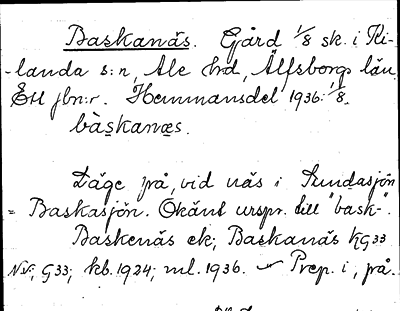 Baskanäs. Gård 1/8 sk. i Ki-
-landa s:n, Ale hd, Älfsborgs län
Ett jbn:r. Hemmansdel 1936: 1/8.
bàskanæs.
Läge på, vid näs i Sundasjön
= Baskasjön. Okänt urspr. till "bask-".
Baskenäs ek; Baskanäs KG33
G33; kb. 1924; ml. 1936. Prep. i, på.